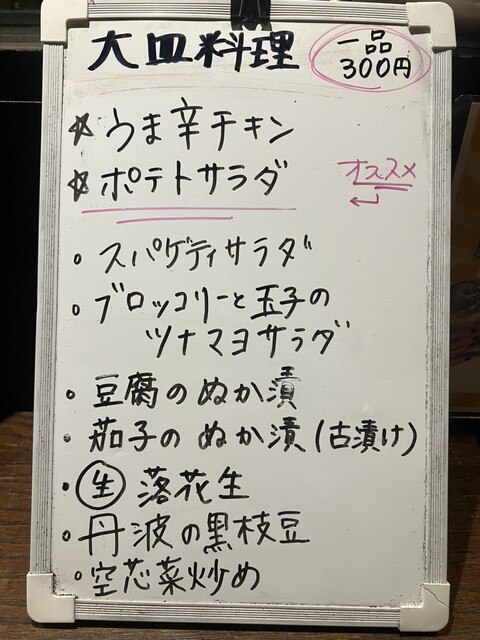 大皿料理 一品
300円
☆うま辛チキン
☆ポテトサラダ オススメ
・スパゲティサラダ
・ブロッコリーと玉子の
ツナマヨサラダ
・豆腐のぬか漬
・茄子のぬか漬(古漬け)
・生 落花生
・丹波の黒枝豆
・空芯菜炒め